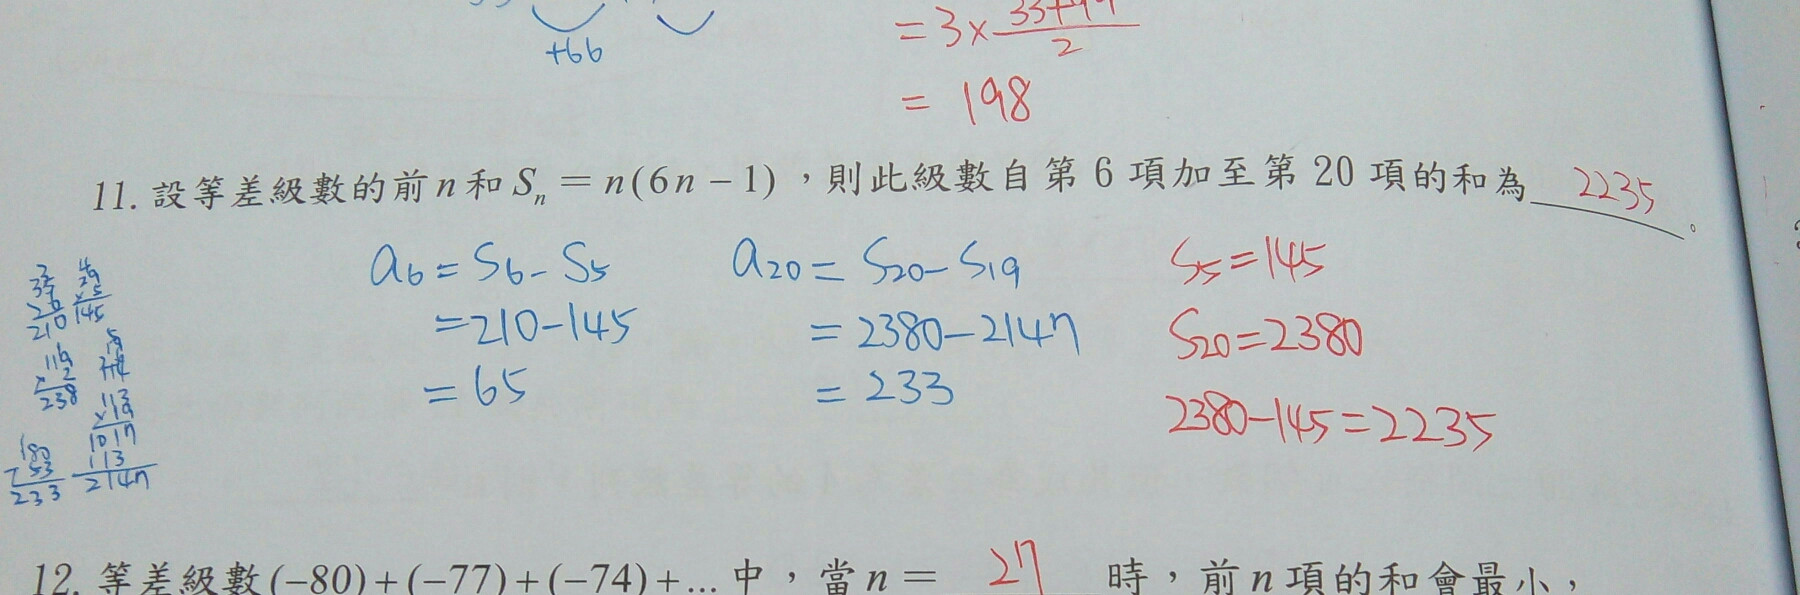 +66
= 3 × 33+99 / 2
= 198
11. 設等差級數的前 n 和 Sn = n(6n − 1)，則此級數自第 6 項加至第 20 項的和為 2235 。
a6 = S6 - S5
= 210 - 145
= 65
a20 = S20 - S19
= 2380 - 2147
= 233
S5 = 145
S20 = 2380
2380 - 145 = 2235
210 145
238
1017
113
2147
180
53
233
12. 等差級數 (−80) + (−77) + (−74) + ... 中，當 n = 27 時，前 n 項的和會最小，